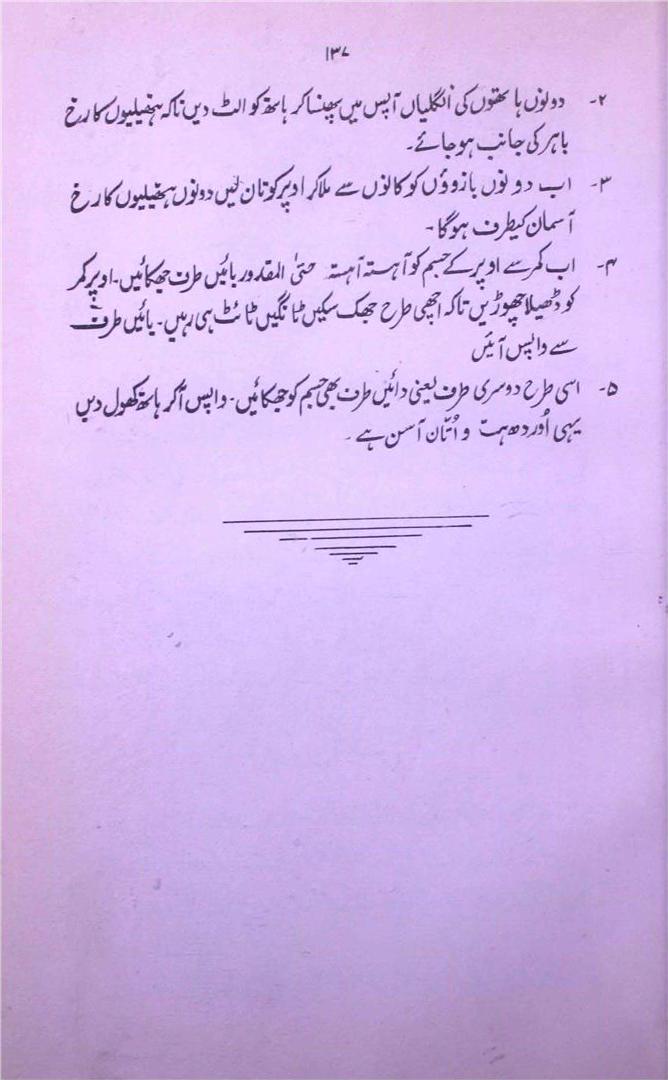 ۱۳۷
۲۔ دونوں ہاتھوں کی انگلیاں آپس میں پھنسا کر ہاتھ کو الٹ دیں تاکہ ہتھیلیوں کا رخ
باہر کی جانب ہو جائے۔
۳۔ اب دونوں بازوؤں کو کانوں سے ملا کر اوپر کو تان لیں دونوں ہتھیلیوں کا رخ
آسمان کیطرف ہوگا۔
۴۔ اب کمر سے اوپر کے جسم کو آہستہ آہستہ حتیٰ المقدور بائیں طرف جھکائیں۔ اوپر کمر
کو ڈھیلا چھوڑیں تاکہ اچھی طرح جھک سکیں ٹانگیں ٹائٹ ہی رہیں۔ بائیں طرف
سے واپس آئیں
۵۔ اسی طرح دوسری طرف یعنی دائیں طرف بھی جسم کو جھکائیں۔ واپس آکر ہاتھ کھول دیں
یہی اُوردھ ہت و اُتان آسن ہے۔